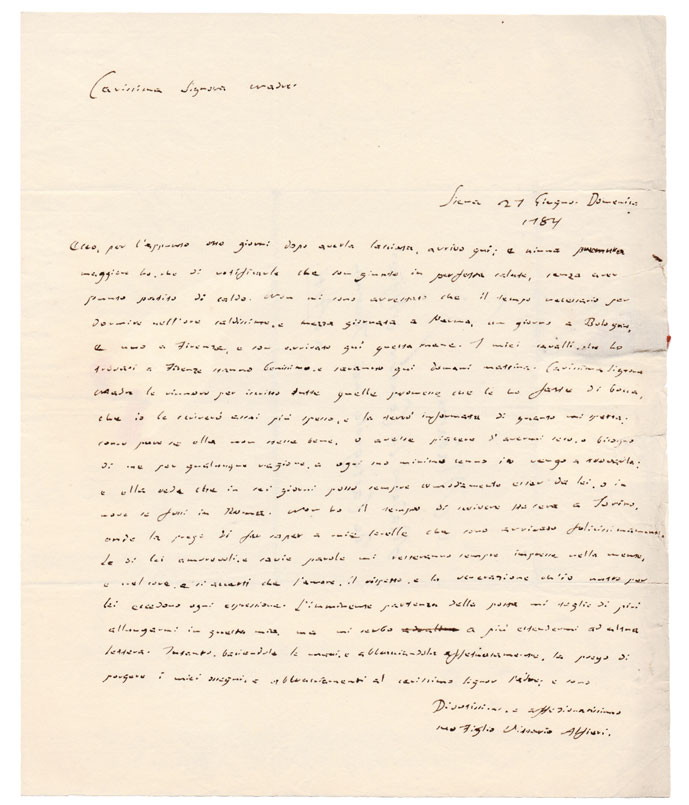 Carissima Signora Madre.
Siena 27 Giugno. Domenica
1784
Ecco, per l'appunto otto giorni dopo averla lasciata, arrivo quì; e niuna premura
maggiore ho, che di notificarle che son giunto in perfetta salute, senza aver
punto patito di caldo. Non mi sono arrestato che il tempo necessario per
dormire nell'ore caldissime, e mezza giornata a Parma, un giorno a Bologna,
e uno a Firenze, e son arrivato quì questa mane. I miei cavalli, che ho
trovati a Firenze stanno benissimo, e saranno quì domani mattina. Carissima Signora
Madre le rinnovo per iscritto tutte quelle promesse che le ho fatte di bocca,
che io le scriverò assai più spesso, e la terrò informata di quanto mi spetta;
come pure se ella non stesse bene, o avesse piacere d'avermi seco, o bisogno
di me per qualunque ragione, a ogni suo minimo cenno io vengo a trovarla;
e ella veda che in sei giorni posso sempre comodamente esser da lei, o in
nove se fossi in Roma. Non ho il tempo di scrivere stasera a Torino,
onde la prego di far saper a mia sorella che sono arrivato felicissimamente.
Le di lei amorevoli, e savie parole mi resteranno sempre impresse nella mente,
e nel core, e si accerti che l'amore, il rispetto, e la venerazione ch'io nutro per
lei eccedono ogni espressione. L'imminente partenza della posta mi toglie di più
allungarmi in questa mia, ma mi serbo a più estendermi ad altra
lettera. Intanto, baciandole le mani, e abbracciandola affettuosamente, la prego di
porgere i miei ossequi, e abbracciamenti al carissimo Signor Padre; e sono
Divotissimo, e affezionatissimo
suo Figlio Vittorio Alfieri.